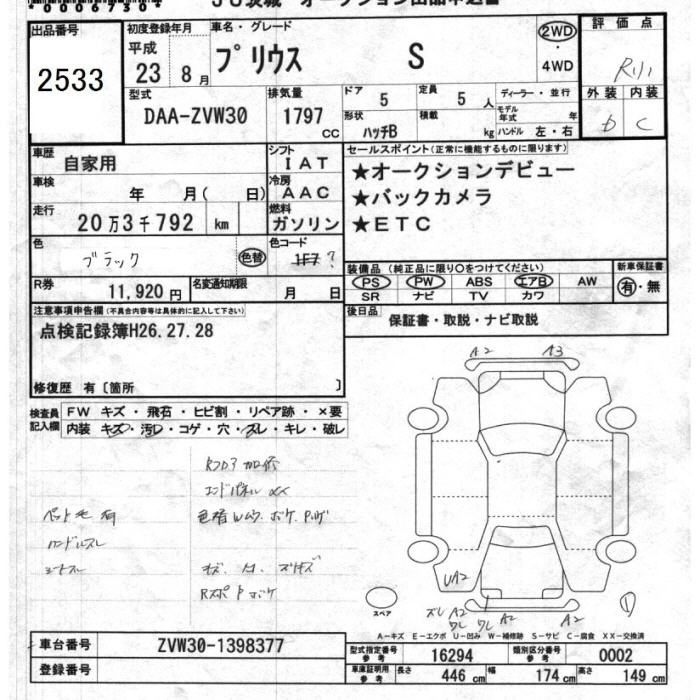 *00067504*
JU茨城 オークション出品申込書
出品番号
2533
初度登録年月
平成
23 8月
車名・グレード
プリウス S
2WD
・
4WD
評価点
外装 内装
D C
型式
DAA-ZVW30
排気量
1797
CC
ドア
5
定員
5 人
形状
ハッチB
積載
kg
ディーラー・並行
モデル年式 年
ハンドル 左・右
車歴
自家用
シフト
IAT
車検
年 月( 日)
冷房
AAC
走行
20万3千792 km
燃料
ガソリン
色
ブラック
色替
色コード
1F7 ?
R券
11,920円
名変通知期限
月 日
セールスポイント(正常に機能するものに限ります)
★オークションデビュー
★バックカメラ
★ETC
装備品(純正品に限り○をつけてください)
PS PW ABS エアB AW
SR ナビ TV カワ
新車保証書
有・無
後日品
保証書・取説・ナビ取説
注意事項申告欄(不具合内容等は具体的に記入して下さい)
点検記録簿H26.27.28
修復歴 有〔箇所 〕
検査員記入欄
FW キズ・飛石・ヒビ割・リペア跡・×要
内装 キズ・汚レ・コゲ・穴・スレ・キレ・破レ
エンドパネル XX
ペット毛有
ハンドルスレ
シートスレ
A2 A3
UA2
ズレ A2
ワレ ワレ A2 A2
スペア
A-キズ E-エクボ U-凹み W-補修跡 S-サビ C-腐食 XX-交換済
車台番号
ZVW30-1398377
登録番号
型式指定番号参考
16294
類別区分番号参考
0002
車庫証明用参考
長さ 446 cm 幅 174 cm 高さ 149 cm